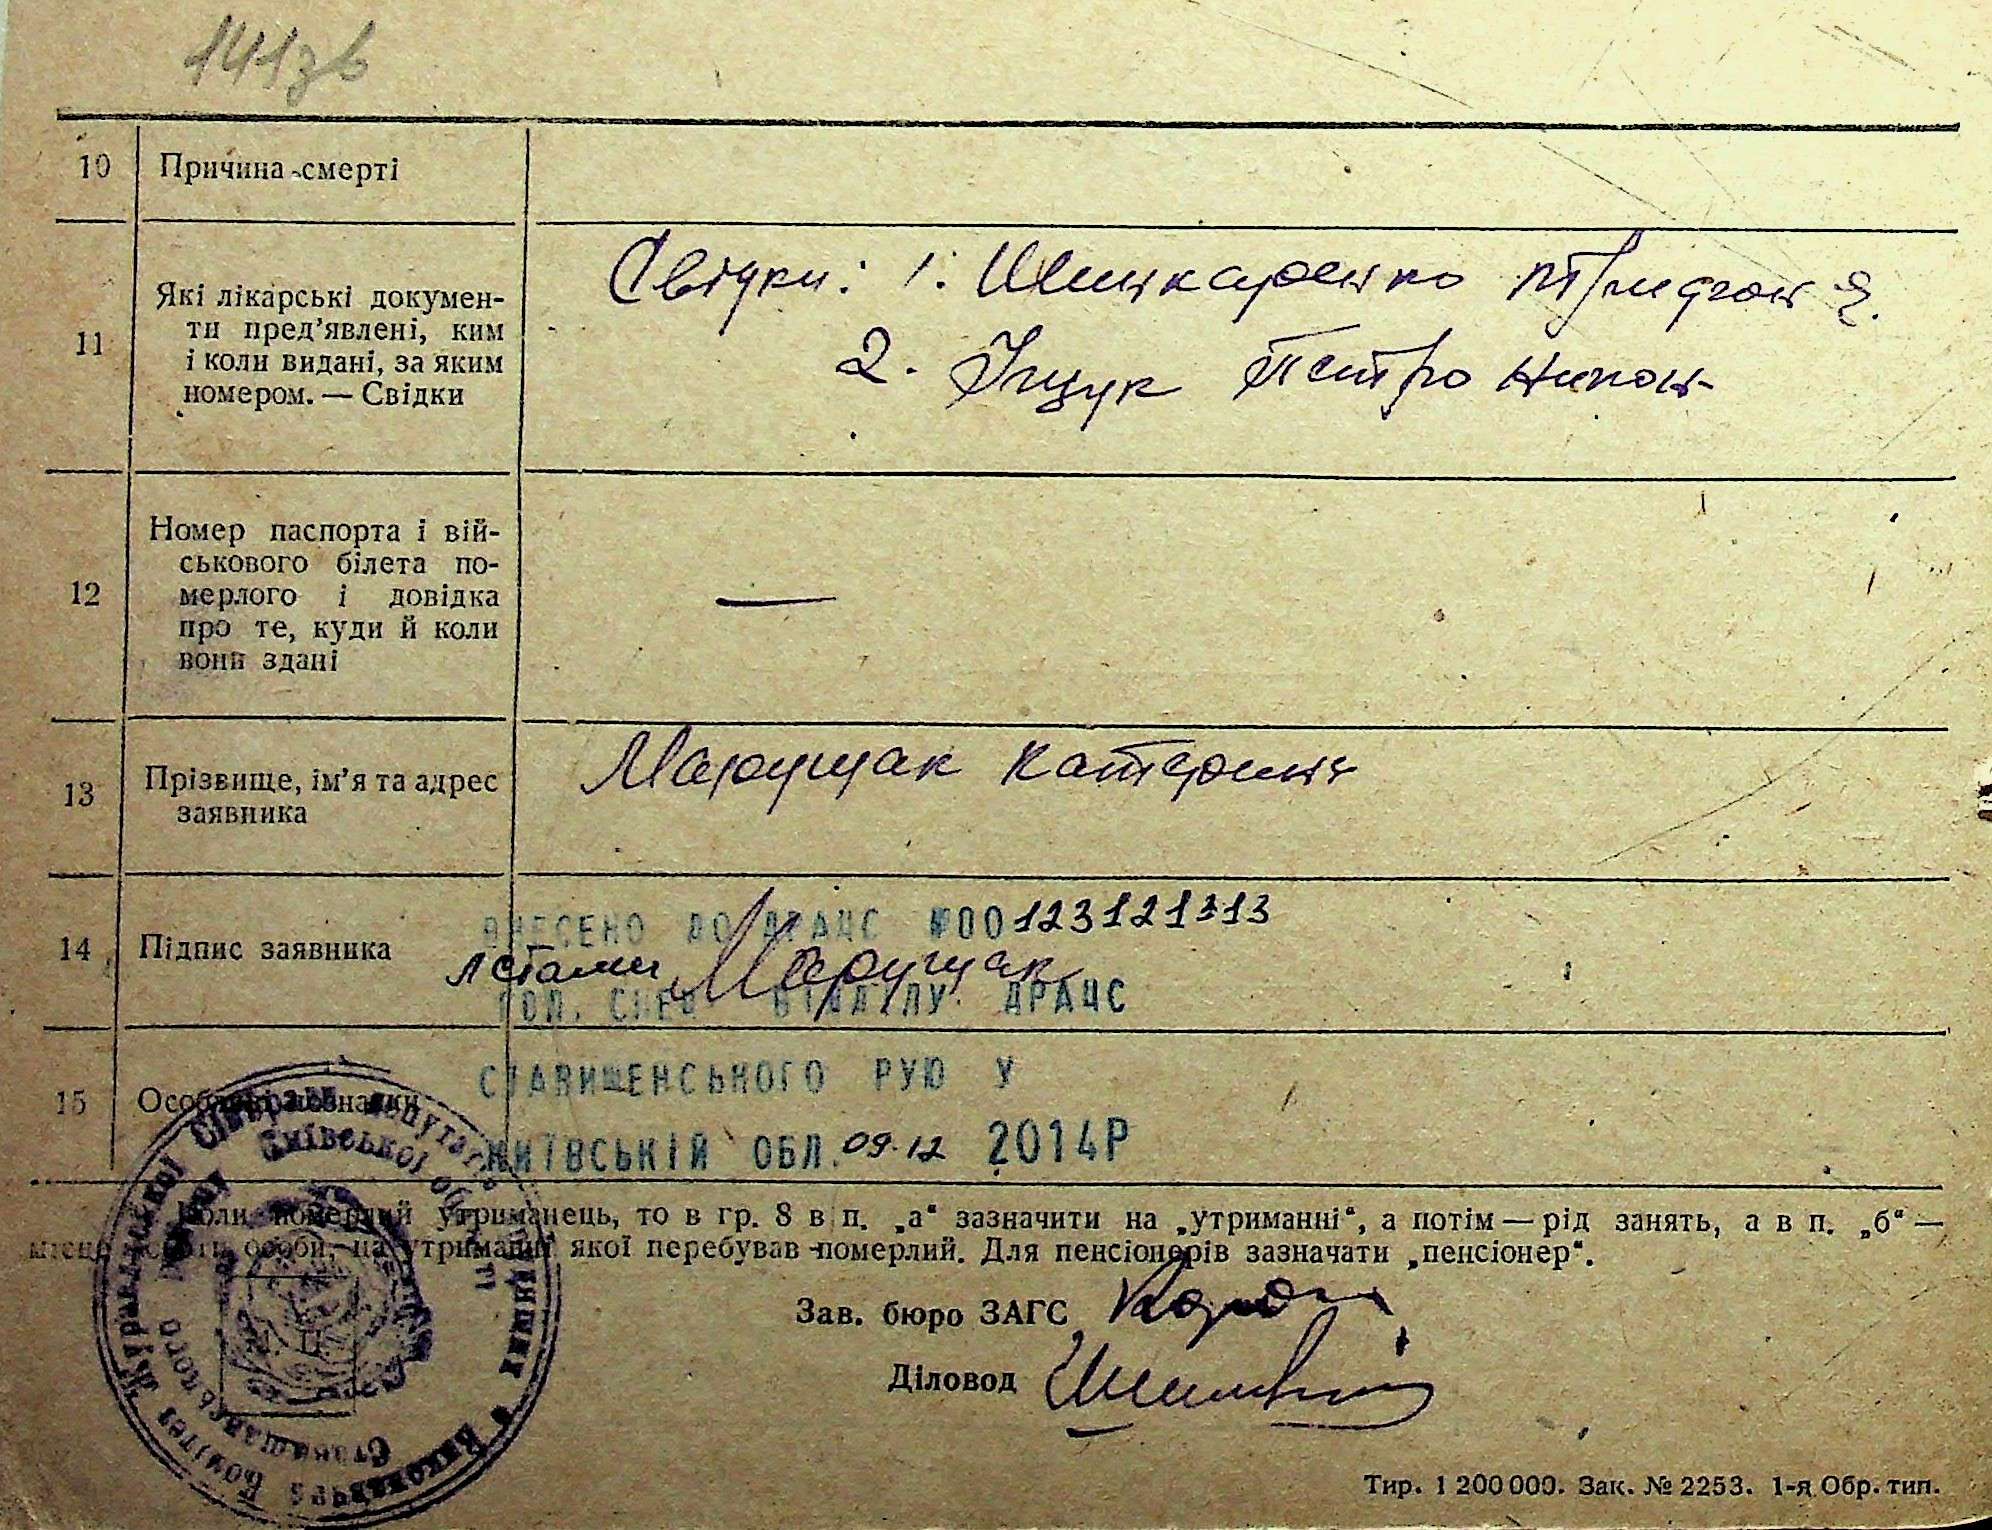 141зв
10 Причина смерті
11 Які лікарські докумен-
ти пред’явлені, ким
і коли видані, за яким
номером. — Свідки
Свідки: 1. Шинкаренко Тридон Я.
2. Іщук Петро Никон
12 Номер паспорта і вій-
ськового білета по-
мерлого і довідка
про те, куди й коли
вони здані
—
13 Прізвище, ім’я та адрес
заявника
Марущак Катерина
14 Підпис заявника
ВНЕСЕНО ДО ДРАЦС №00123121313
Марущак
ГОЛ. СПЕЦ ВІДДІЛУ ДРАЦС
15 Особливі познаки
СТАВИЩЕНСЬКОГО РУЮ У
КИЇВСЬКІЙ ОБЛ. 09.12 2014Р
Коли померлий утриманець, то в гр. 8 в п. „а“ зазначити на „утриманні“, а потім — рід занять, а в п. „б“ —
місце роботи особи, на утриманні якої перебував померлий. Для пенсіонерів зазначати „пенсіонер“.
Зав. бюро ЗАГС
Діловод
Виконавчий Комітет Журавлиської Сільради депутатів трудящих
Ставищанського району Київської області
Тир. 1 200 000. Зак. № 2253. 1-я Обр. тип.